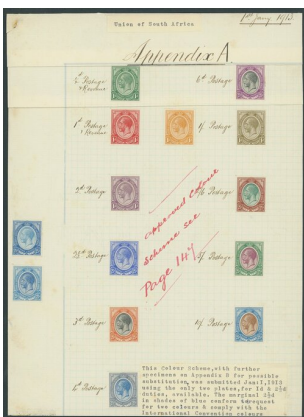 Union of South Africa
1st Jany 1913
Appendix A
½d Postage & Revenue
6d Postage
1d Postage & Revenue
1/- Postage
2d Postage
2/6 Postage
2½d Postage
5/- Postage
approved colour
scheme see
Page 147
3d Postage
10/- Postage
4d Postage
This Colour Scheme, with further
specimens on Appendix B for possible
substitution, was submitted Jan.1, 1913
using the only two plates, for 1d & 2½d
duties, available. The marginal 2½d
in shades of blue confirm subsequent
for two colours & comply with the
International Convention colours